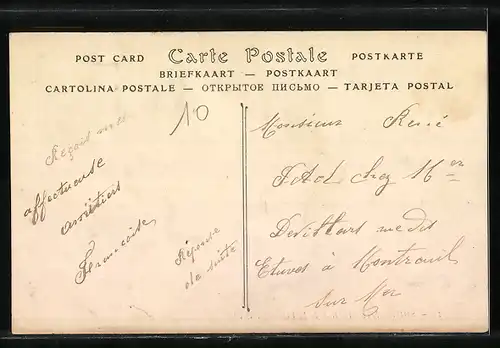 POST CARD Carte Postale POSTKARTE
BRIEFKAART — POSTKAART
CARTOLINA POSTALE — ОТКРЫТОЕ ПИСЬМО — TARJETA POSTAL
10
Reçois mes
affectueuse
amitiers
Réponse
de suite
Monsieur René
chez Mer
Etuves à Montreuil
sur Mer